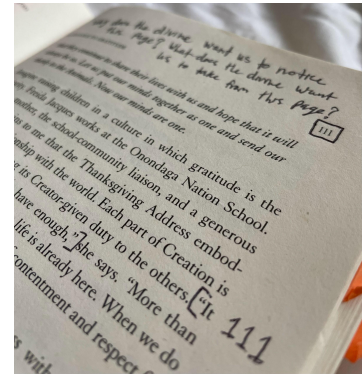 does the divine want us to notice
this page? What does the divine want
us to take from this page?
111
continue to share their lives with us and hope that it will
be so. Let us put our minds together as one and send our
to the Animals. Now our minds are one.
raising children in a culture in which gratitude is the
Freida Jacques works at the Onondaga Nation School.
mother, the school-community liaison, and a generous
to me that the Thanksgiving Address embod-
with the world. Each part of Creation is
its Creator-given duty to the others. ["It
have enough,"] she says. "More than 111
life is already here. When we do
contentment and respect